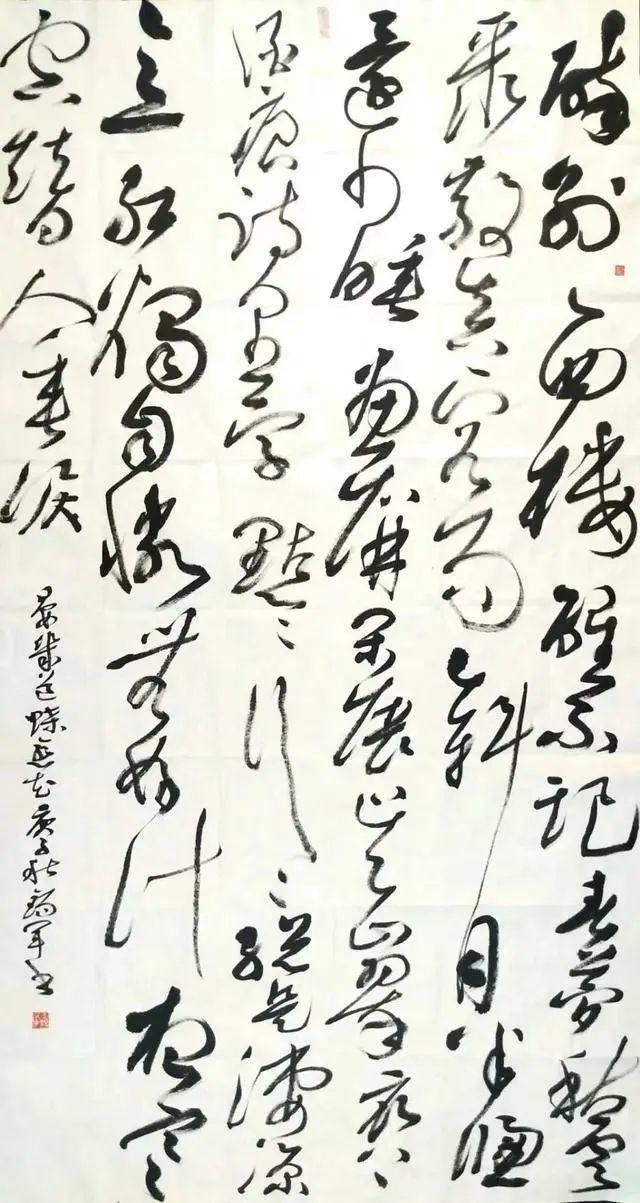 醉别西樓醒不記春夢秋雲
聚散真容易斜月半窗
還少睡畫屏閑展吴山翠衣上
酒痕詩里字點〻行〻總是凄凉
意紅燭自憐無好計夜寒
空替人垂淚
晏幾道蝶戀花庚子秋軍書